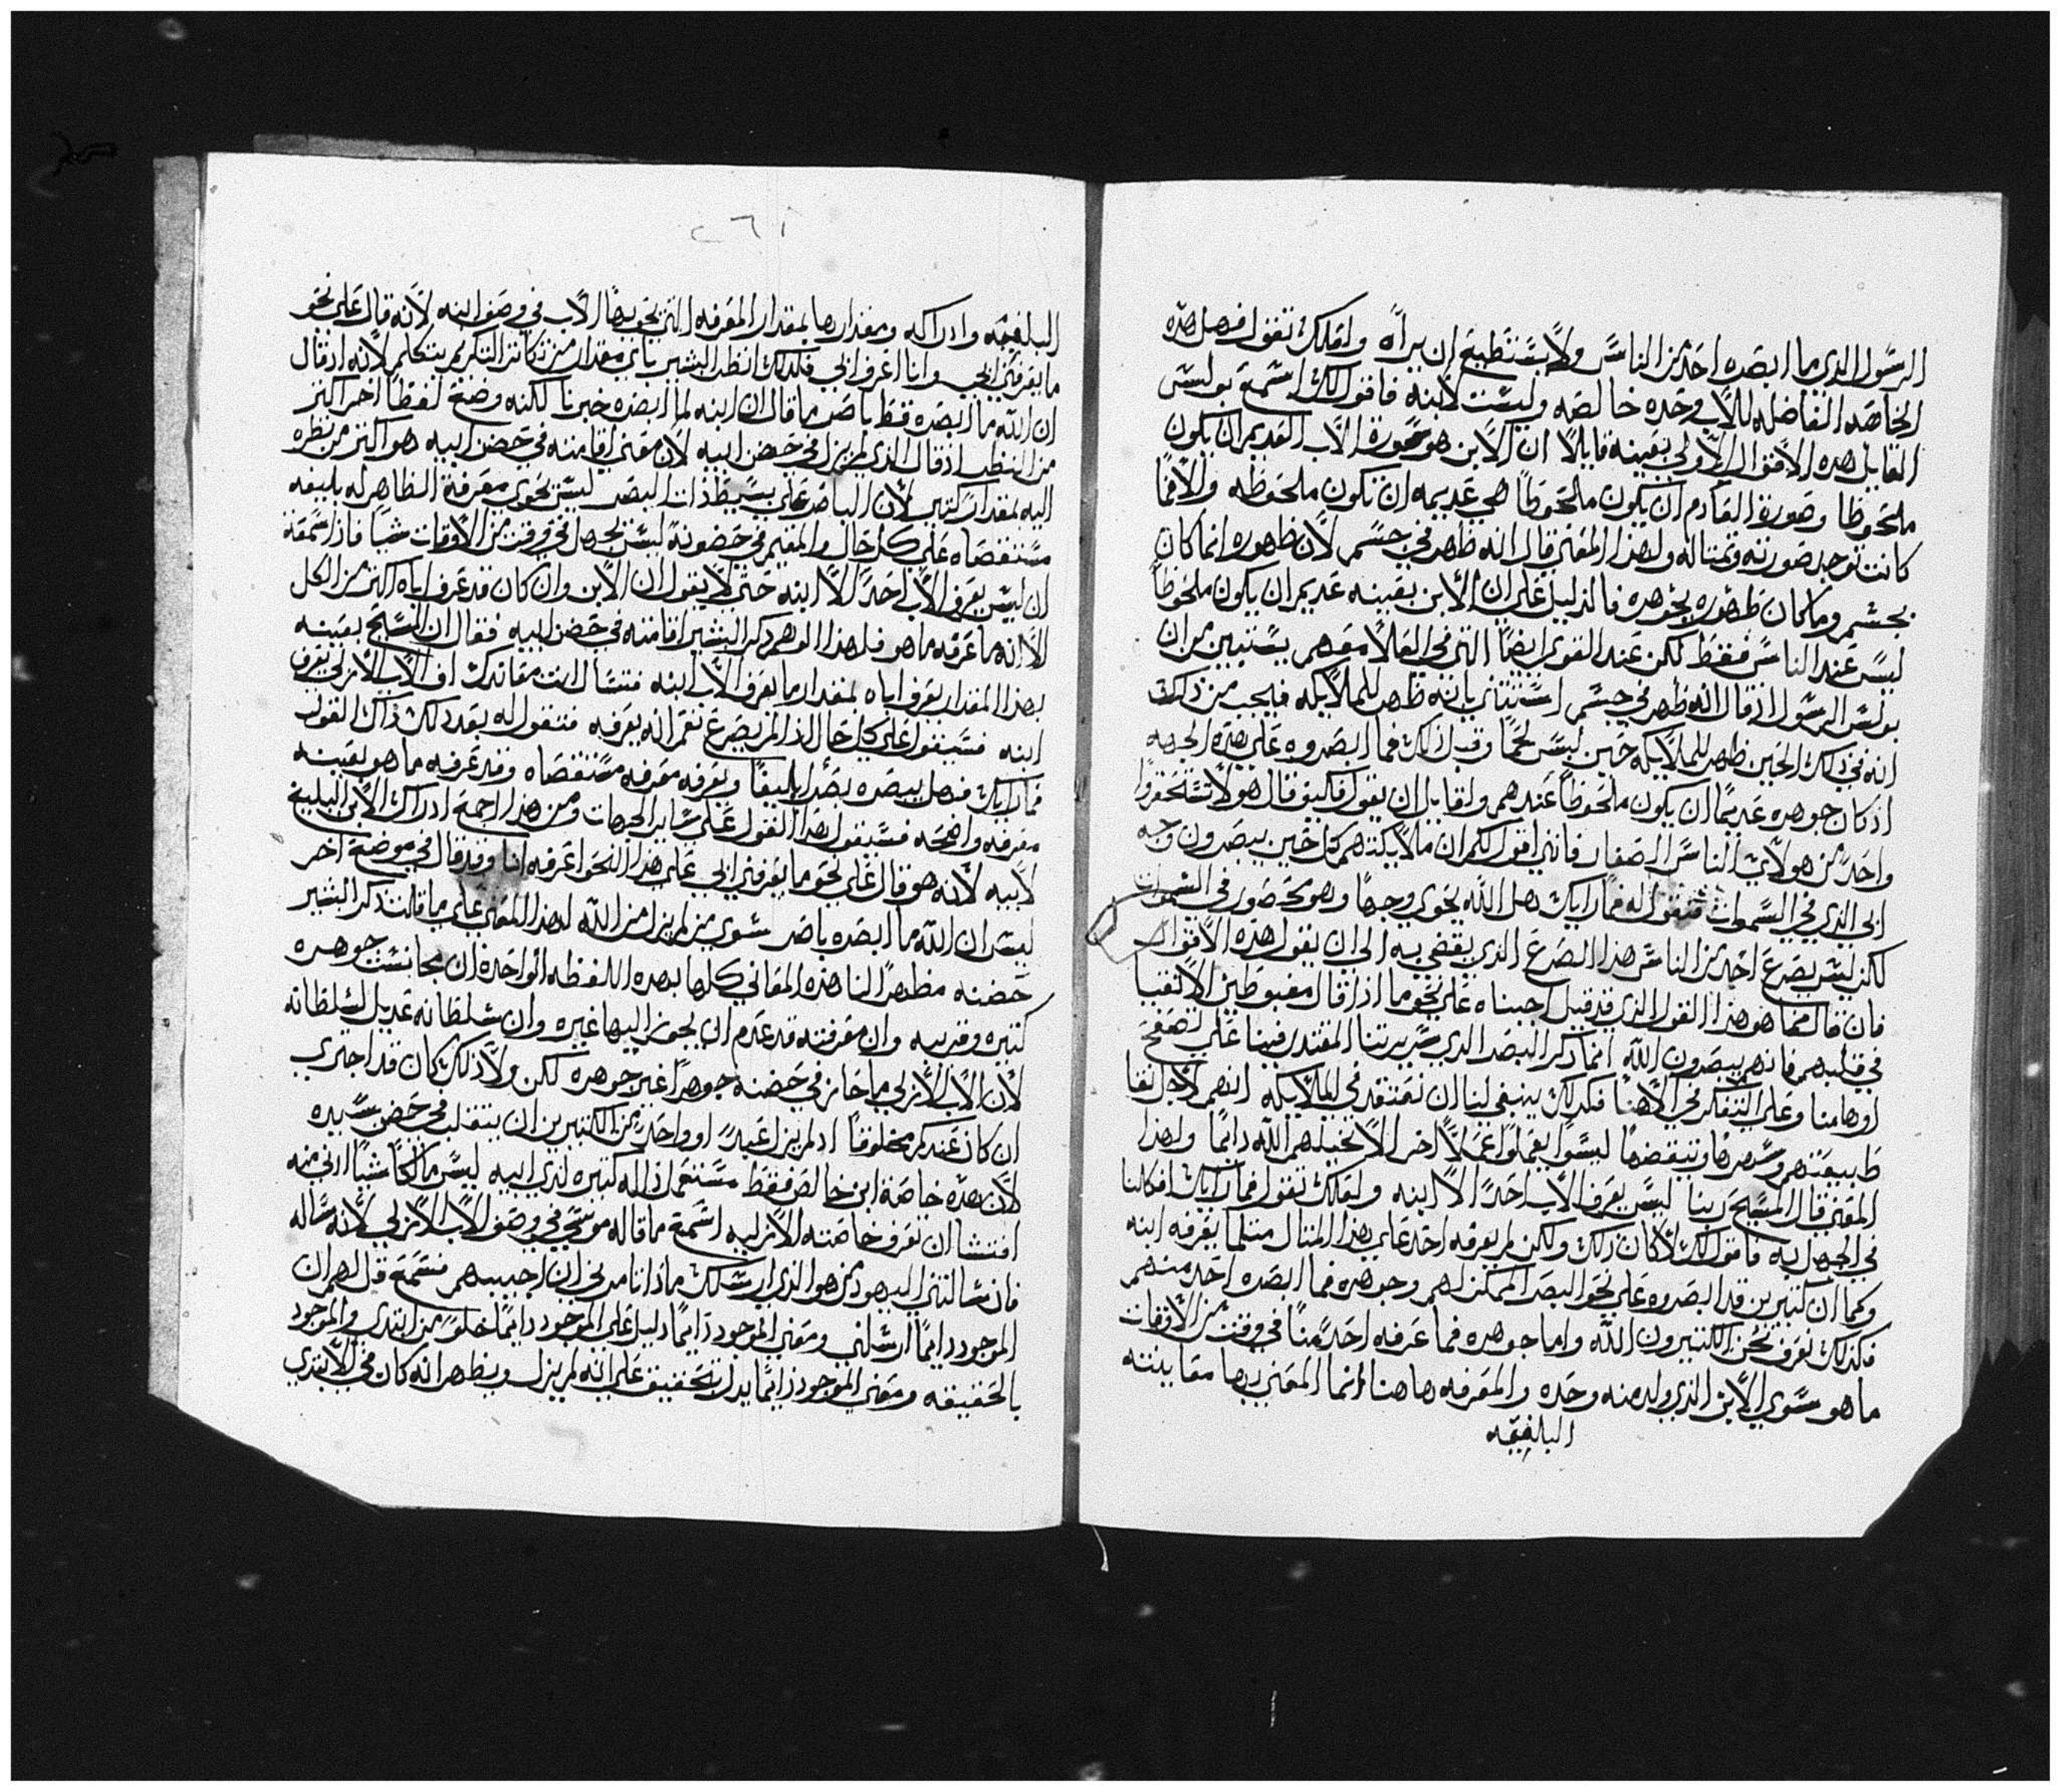 الرسول الذي ما ابصره احد من الناس ولا يستطيع ان يراه ولعلك تقول افهل هذه
الخاصه الفاضله للاب وحده خالصه وليست لابنه فاقول لك اسمع بولس
القايل هذه الاقوال الاولي بعينه قايلا ان الابن هو صورة الاب القديم ان يكون
ملحوظا وصورة العادم ان يكون ملحوظا هي عديمه ان تكون ملحوظه والا فما
كانت توجد صورته وتمثاله ولهذا المعني قال الله ظهر في جسم لان ظهوره انما كان
بجسم وما كان ظهوره بجوهره فالدليل علي ان الابن بعينه عديم ان يكون ملحوظا
ليس عند الناس فقط لكن عند القوي ايضا التي في العلا معهم يستبين من ان
بولس الرسول اذ قال الله ظهر في جسم استثني بانه ظهر للملايكه فيجب من ذلك
انه في ذلك الحين ظهر للملايكه حين لبس لحما وقبل ذلك فما ابصروه علي هذه الجهه
اذ كان جوهره عديما ان يكون ملحوظا عندهم ولقايل ان يقول فكيف قال هو لا تستحقروا
واحدا من هولاي الناس الصغار فانني اقول لكم ان ملايكتهم كل حين يبصرون وجه
ابي الذي في السموات فنقول له فما رايك هل الله يحوي وجها وهو محصور في السموات
لكن ليس يصرع احد من الناس هذا الصرع الذي يفضي به الي ان يقول هذه الاقوال
فان قال فما هو هذا القول الذي قد قيل اجبناه علي نحو ما اذا قال مغبوطين الاتقيا
في قلبهم فانهم يبصرون الله انما ذكر البصر الذي بسريرتنا المقتدر فينا علي تصفح
اوهامنا وعلي التفكر في الاهنا فكذلك ينبغي لنا ان نعتقد في الملايكه انهم لاجل نقا
طبيعتهم وسهرها وتيقضها ليسوا يعملوا عملا اخر الا تخيلهم الله دايما ولهذا
المعني قال المسيح ربنا ليس يعرف الاب احدا الا ابنه ولعلك تقول فما رايك افكلنا
في الجهل به فاقول لك لا كان ذلك ولكن لم يعرفه احد علي هذا المثال مثلما يعرفه ابنه
وكما ان كثيرين قد ابصروه علي نحو البصر الممكن لهم وجوهره فما ابصره احد منهم
فكذلك نعرف نحن الكثيرون الله واما جوهره فما عرفه احد منا في وقت من الاوقات
ما هو سوي الابن الذي ولد منه وحده والمعرفه هاهنا انما المعني بها معاينته
البليغه
٢٦١
البليغه وادراكه ومقدارها بمقدار المعرفه التي يحويها الاب في وصف ابنه لانه قال علي نحو
ما يعرفني ابي وانا اعرف ابي فلذلك انظر البشير باي مقدار من تكاثر التكريم يتكلم لانه اذ قال
ان الله ما ابصره قط باصر ما قال ان ابنه لما ابصره خبرنا لكنه وضع لفظا اخر اكثر
من النظر اذ قال الذي لم يزل في حضن ابيه لان معني اقامته في حضن ابيه هو اكثر من نظره
اليه بمقدار كثير لان الباصر علي بسيط ذات البصر ليس يحوي معرفة الظاهر له بليغه
مستقصاه علي كل حال والمقيم في حضونة ليس يجهل في وقت من الاوقات شيا فاذا سمعته
ان ليس يعرف الاب احدا الا ابنه حتي لا يقول ان الابن وان كان قد عرف اباه اكثر من الكل
الا انه ما عرفه ما هو فلهذا الوهم ذكر البشير اقامته في حضن ابيه فقال ان المسيح بعينه
بهذا المقدار يعرف اباه بمقدار ما يعرف الاب ابنه فتسال انت معاندك اف الاب الازلي يعرف
ابنه فسيقول علي كل حال اذا لم يصرع نعم انه يعرفه فنقول له بعد ذلك ذاك القول
فما رايك فهل يبصره بصرا بليغا ويعرفه معرفه مستقصاه وقد عرفه ما هو بعينه
معرفه واضحه فسيقول هذا القول علي ساير الجهات ومن هذا اجمع ادراك الابن البليغ
لابيه لانه هو قال علي نحو ما يعرفني ابي علي هذا النحو اعرفه انا وقد قال في موضع اخر
ليس ان الله ما ابصره باصر سوي من لم يزل من الله لهذا المعني علي ما قلت ذكر البشير
حضنه مظهرا لنا هذه المعاني كلها بهذه اللفظه الواحده ان مجانست جوهره
كثيره وقريبه وان معرفته قد عدم ان يجوز اليها غيره وان سلطانه عديل لسلطانه
لان الاب الازلي ما حاز في حضنه جوهرا غير جوهره لكن ولا ذلك كان قد اجتري
ان كان عندكم مخلوقا اذ لم يزل عبدا او واحدا من الكثيرين ان يتقلب في حضن سيده
لان هذه خاصة ابن خالص فقط مستعملا داله كثيره لدي ابيه ليس مالكا شيا ادني منه
افتشا ان تعرف خاصته الازليه اسمع ما قاله موسي في وصف الاب الازلي لانه ساله
فان سالني اليهود من هو الذي ارسلك ماذا تامرني ان اجيبهم فسمع قل لهم ان
الموجود دايما ارسلني ومعني الموجود دايما دليل علي الموجود دايما خلوا من ابتدي والموجود
بالحقيقه ومعني الموجود دايما يدل بتحقيق علي انه لم يزل ويظهر انه كان في الابتدي